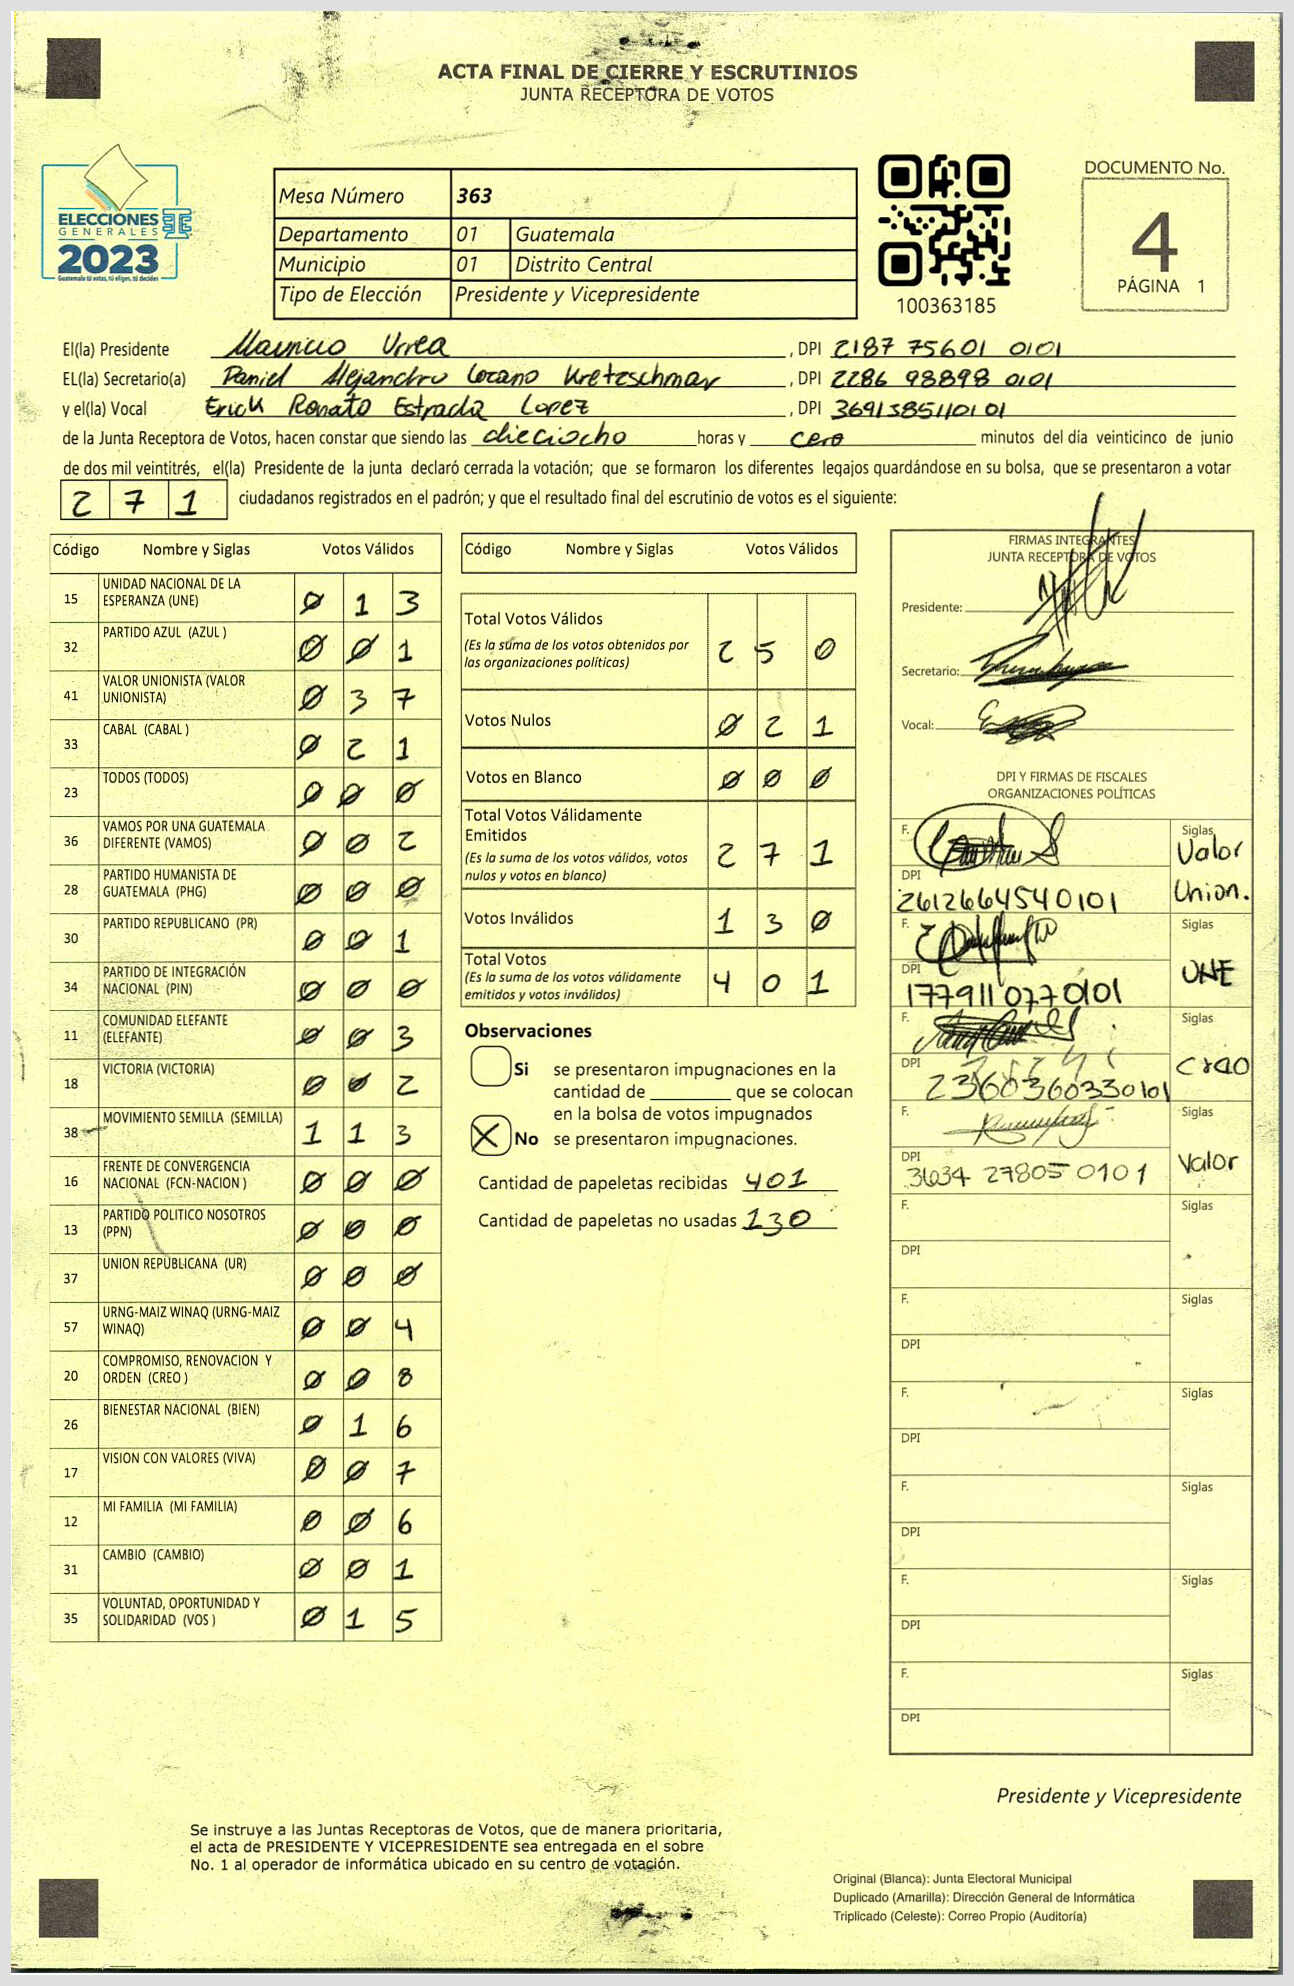 ACTA FINAL DE CIERRE Y ESCRUTINIOS
JUNTA RECEPTORA DE VOTOS
ELECCIONES
GENERALES
2023
Guatemala tú votas, tú eliges, tú decides
Mesa Número 363
Departamento 01 Guatemala
Municipio 01 Distrito Central
Tipo de Elección Presidente y Vicepresidente
100363185
DOCUMENTO No.
4
PÁGINA 1
El(la) Presidente Mauricio Urrea , DPI 2187 75601 0101
EL(la) Secretario(a) Daniel Alejandro Lozano Kretzschmar , DPI 2286 98898 0101
y el(la) Vocal Erick Ronato Estrada Lopez , DPI 3691385110101
de la Junta Receptora de Votos, hacen constar que siendo las dieciocho horas y cero minutos del día veinticinco de junio
de dos mil veintitrés, el(la) Presidente de la junta declaró cerrada la votación; que se formaron los diferentes legajos quardándose en su bolsa, que se presentaron a votar
271 ciudadanos registrados en el padrón; y que el resultado final del escrutinio de votos es el siguiente:
Código Nombre y Siglas Votos Válidos
15 UNIDAD NACIONAL DE LA ESPERANZA (UNE) 0 1 3
32 PARTIDO AZUL (AZUL ) 0 0 1
41 VALOR UNIONISTA (VALOR UNIONISTA) 0 3 7
33 CABAL (CABAL ) 0 2 1
23 TODOS (TODOS) 0 0 0
36 VAMOS POR UNA GUATEMALA DIFERENTE (VAMOS) 0 0 2
28 PARTIDO HUMANISTA DE GUATEMALA (PHG) 0 0 0
30 PARTIDO REPUBLICANO (PR) 0 0 1
34 PARTIDO DE INTEGRACIÓN NACIONAL (PIN) 0 0 0
11 COMUNIDAD ELEFANTE (ELEFANTE) 0 0 3
18 VICTORIA (VICTORIA) 0 0 2
38 MOVIMIENTO SEMILLA (SEMILLA) 1 1 3
16 FRENTE DE CONVERGENCIA NACIONAL (FCN-NACION ) 0 0 0
13 PARTIDO POLITICO NOSOTROS (PPN) 0 0 0
37 UNION REPUBLICANA (UR) 0 0 0
57 URNG-MAIZ WINAQ (URNG-MAIZ WINAQ) 0 0 4
20 COMPROMISO, RENOVACION Y ORDEN (CREO ) 0 0 8
26 BIENESTAR NACIONAL (BIEN) 0 1 6
17 VISION CON VALORES (VIVA) 0 0 7
12 MI FAMILIA (MI FAMILIA) 0 0 6
31 CAMBIO (CAMBIO) 0 0 1
35 VOLUNTAD, OPORTUNIDAD Y SOLIDARIDAD (VOS ) 0 1 5
Código Nombre y Siglas Votos Válidos
Total Votos Válidos 2 5 0
(Es la suma de los votos obtenidos por
las organizaciones políticas)
Votos Nulos 0 2 1
Votos en Blanco 0 0 0
Total Votos Válidamente
Emitidos 2 7 1
(Es la suma de los votos válidos, votos
nulos y votos en blanco)
Votos Inválidos 1 3 0
Total Votos 4 0 1
(Es la suma de los votos válidamente
emitidos y votos inválidos)
Observaciones
Si se presentaron impugnaciones en la
cantidad de ________ que se colocan
en la bolsa de votos impugnados
X No se presentaron impugnaciones.
Cantidad de papeletas recibidas 401
Cantidad de papeletas no usadas 130
FIRMAS INTEGRANTES
JUNTA RECEPTORA DE VOTOS
Presidente:
Secretario:
Vocal:
DPI Y FIRMAS DE FISCALES
ORGANIZACIONES POLÍTICAS
F. Siglas Valor Union.
DPI 2612664540101
F. Siglas UNE
DPI 1779110770101
F. Siglas CREO
DPI 2360360330101
F. Siglas Valor
DPI 3634 27805 0101
F. Siglas
DPI
F. Siglas
DPI
F. Siglas
DPI
F. Siglas
DPI
F. Siglas
DPI
F. Siglas
DPI
Presidente y Vicepresidente
Se instruye a las Juntas Receptoras de Votos, que de manera prioritaria,
el acta de PRESIDENTE Y VICEPRESIDENTE sea entregada en el sobre
No. 1 al operador de informática ubicado en su centro de votación.
Original (Blanca): Junta Electoral Municipal
Duplicado (Amarilla): Dirección General de Informática
Triplicado (Celeste): Correo Propio (Auditoría)